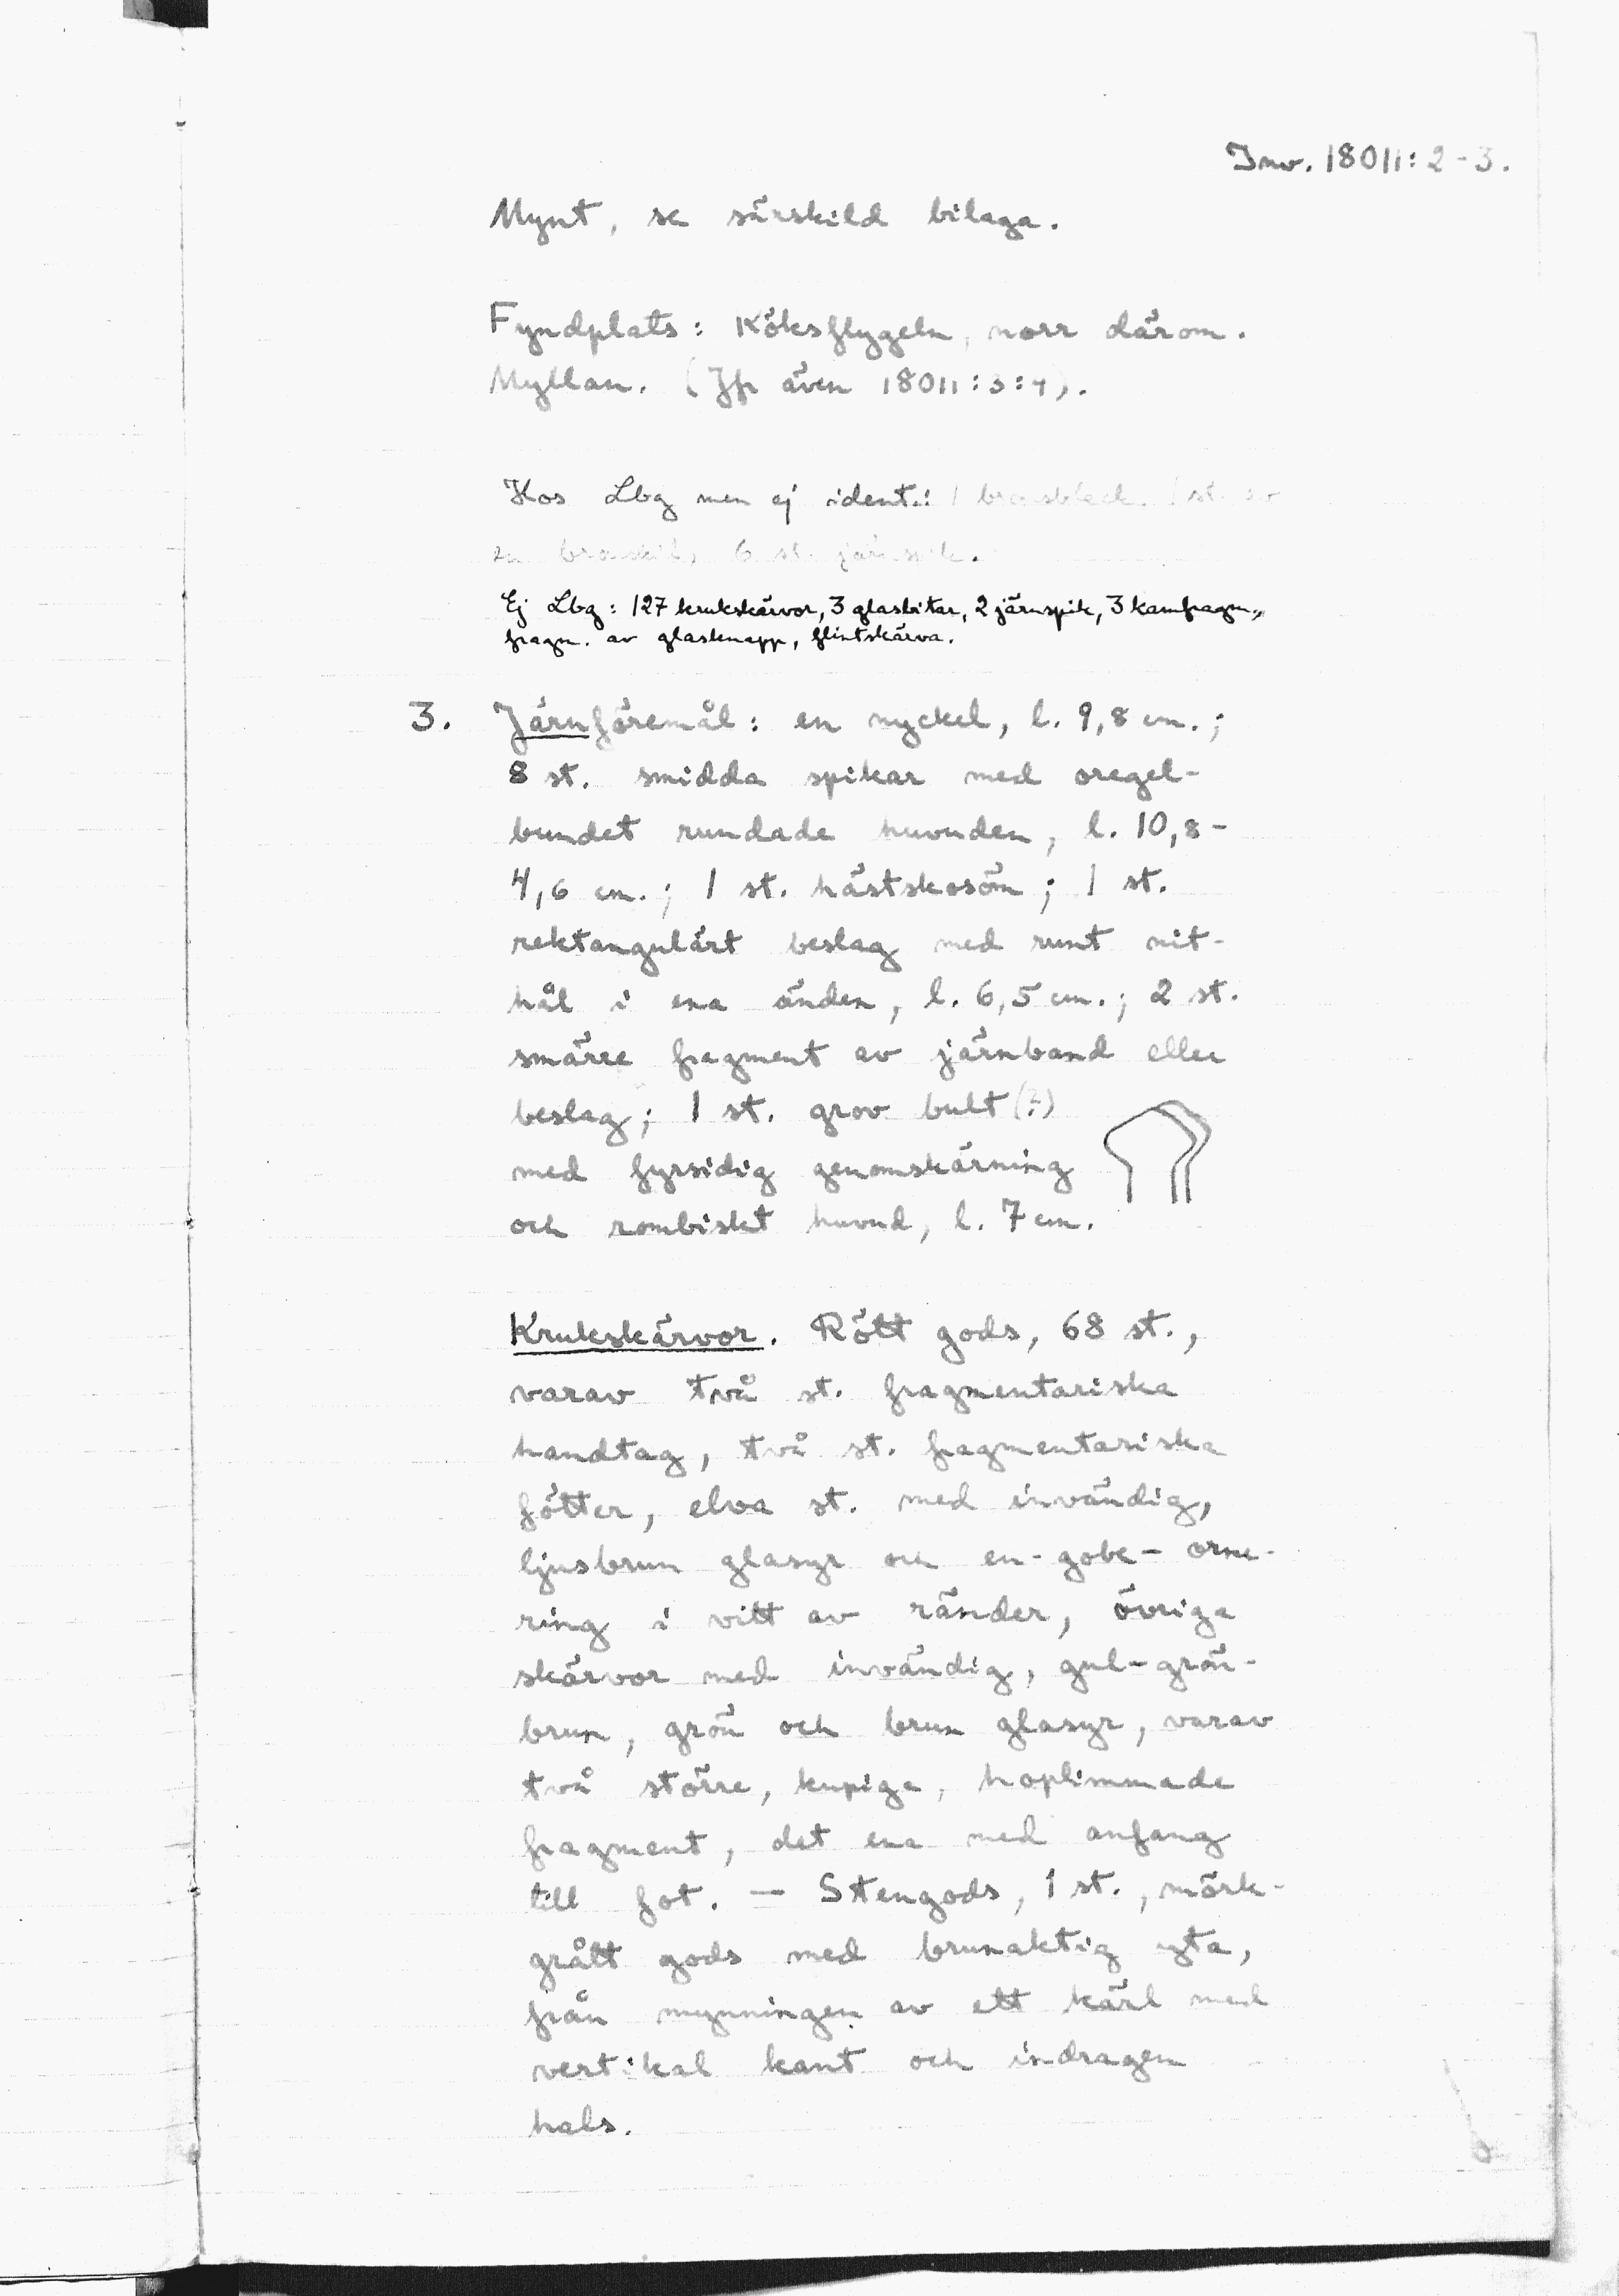 Inv. 18011: 2-3.
Mynt, se särskild bilaga.
Fyndplats: Köksflygeln, norr därom.
Myllan. (Jfr även 18011:3:4).
Hos Lbg men ej ident.: 1 bronsbleck. 1 st. av
6 st. järnspik.
Ej Lbg: 127 krukskärvor, 3 glasbitar, 2 järnspik, 3 kamfragm.,
fragm. av glasknapp, flintskärva.
3. Järnföremål: en nyckel, l. 9,8 cm.;
8 st. smidda spikar med oregel-
bundet rundade huvuden, l. 10,8-
4,6 cm.; 1 st. hästskosöm; 1 st.
rektangulärt beslag med runt nit-
hål i ena änden, l. 6,5 cm.; 2 st.
smärre fragment av järnband eller
beslag; 1 st. grov bult (?)
med fyrsidig genomskärning
och rombiskt huvud, l. 7 cm.
Krukskärvor. Rött gods, 68 st.,
varav två st. fragmentariska
handtag, två st. fragmentariska
fötter, elva st. med invändig,
ljusbrun glasyr och en-gobe- orne-
ring i vitt av ränder, övriga
skärvor med invändig, gul-grön-
brun, grön och brun glasyr, varav
två större, kupiga, hoplimmade
fragment, det ena med anfang
till fot. — Stengods, 1 st., mörk-
grått gods med brunaktig yta,
från mynningen av ett kärl med
vertikal kant och indragen
hals.